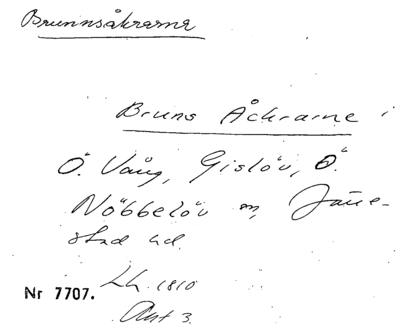 Brunnsåkrarna
Bruns Åckrarne i
Ö. Vång, Gislöv, Ö.
Nöbbelöv sn, Järre-
stad hd.
Lh. 1810
Nr 7707.
Akt 3.